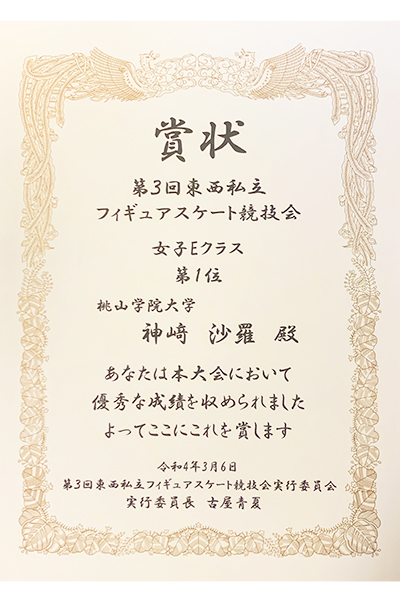 賞状
第3回東西私立
フィギュアスケート競技会
女子Eクラス
第1位
桃山学院大学
神﨑 沙羅 殿
あなたは本大会において
優秀な成績を収められました
よってここにこれを賞します
令和4年3月6日
第3回東西私立フィギュアスケート競技会実行委員会
実行委員長 古屋青夏